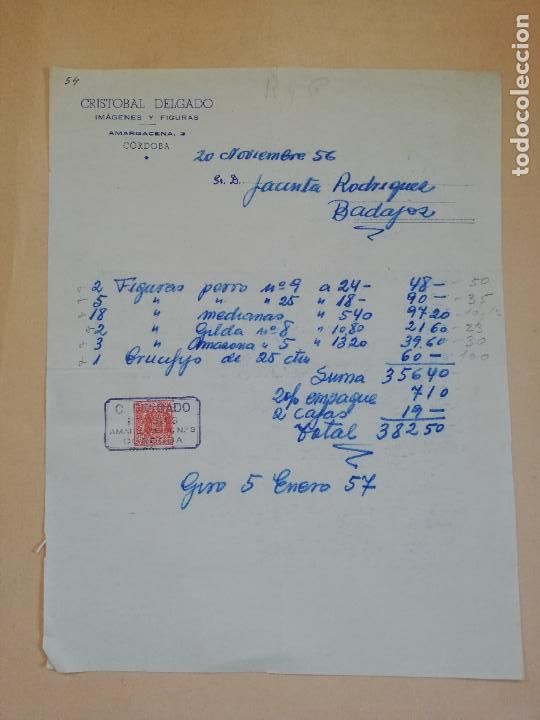 54
CRISTOBAL DELGADO
IMÁGENES Y FIGURAS
AMARGACENA, 3
CÓRDOBA
20 Noviembre 56
Sr. D. Jacinta Rodriguez
Badajoz
2 Figuras perro nº 9 a 24- 48- 50
5 " " " 25 " 18- 90- 35
18 " medianas " 540 9720
2 " Gilda nº 8 " 1080 2160 23
3 " Amazona " 5 " 1320 3960 30
1 Crucifijo de 25 ctm 60- 100
Suma 35640
2% empaque 710
2 cajas 19-
Total 38250
C. DELGADO
AMARGACENA, N.º 3
CORDOBA
Giro 5 Enero 57
todocoleccion